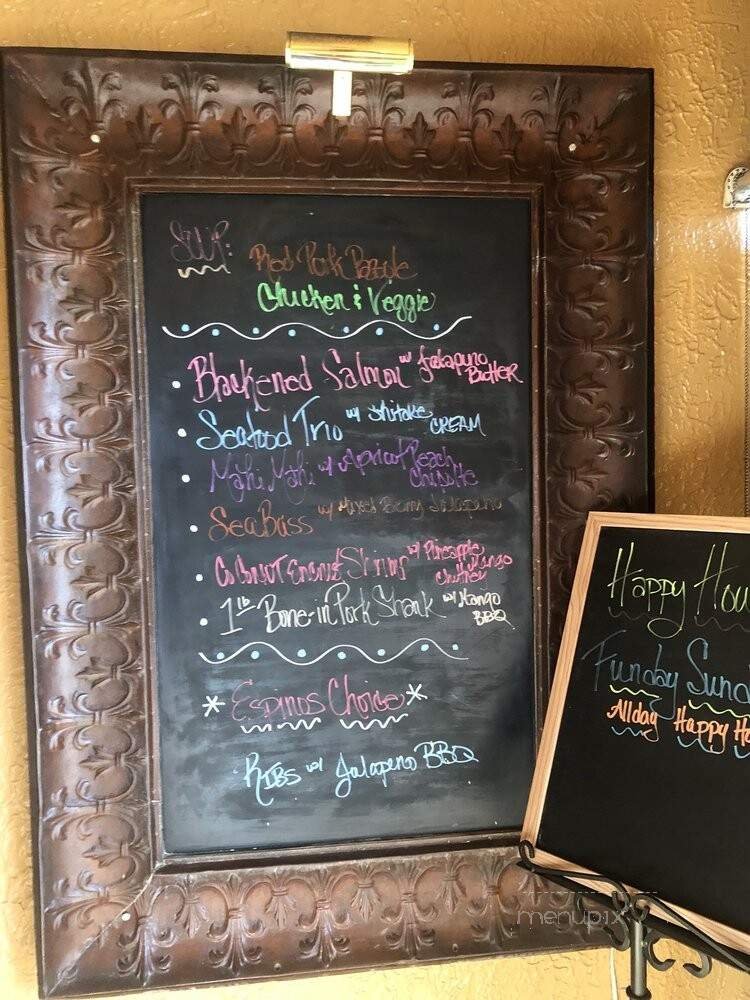 SOUP: Red Pork Pazole
Chicken & Veggie
• Blackened Salmon w/ Jalapuno Butter
• Seafood Trio w/ Shitake CREAM
• Mahi Mahi w/ Apricot Peach Chipotle
• Sea Bass w/ Mixed Berry Jalapeno
• Coconut Shrimp w/ Pineapple Mango Chutney
• 1 lb Bone-in Pork Shank w/ Mango BBQ
* Espinos Choice *
Ribs w/ Jalapeno BBQ
Happy Hou
Funday Sund
Allday Happy Ho
menupix